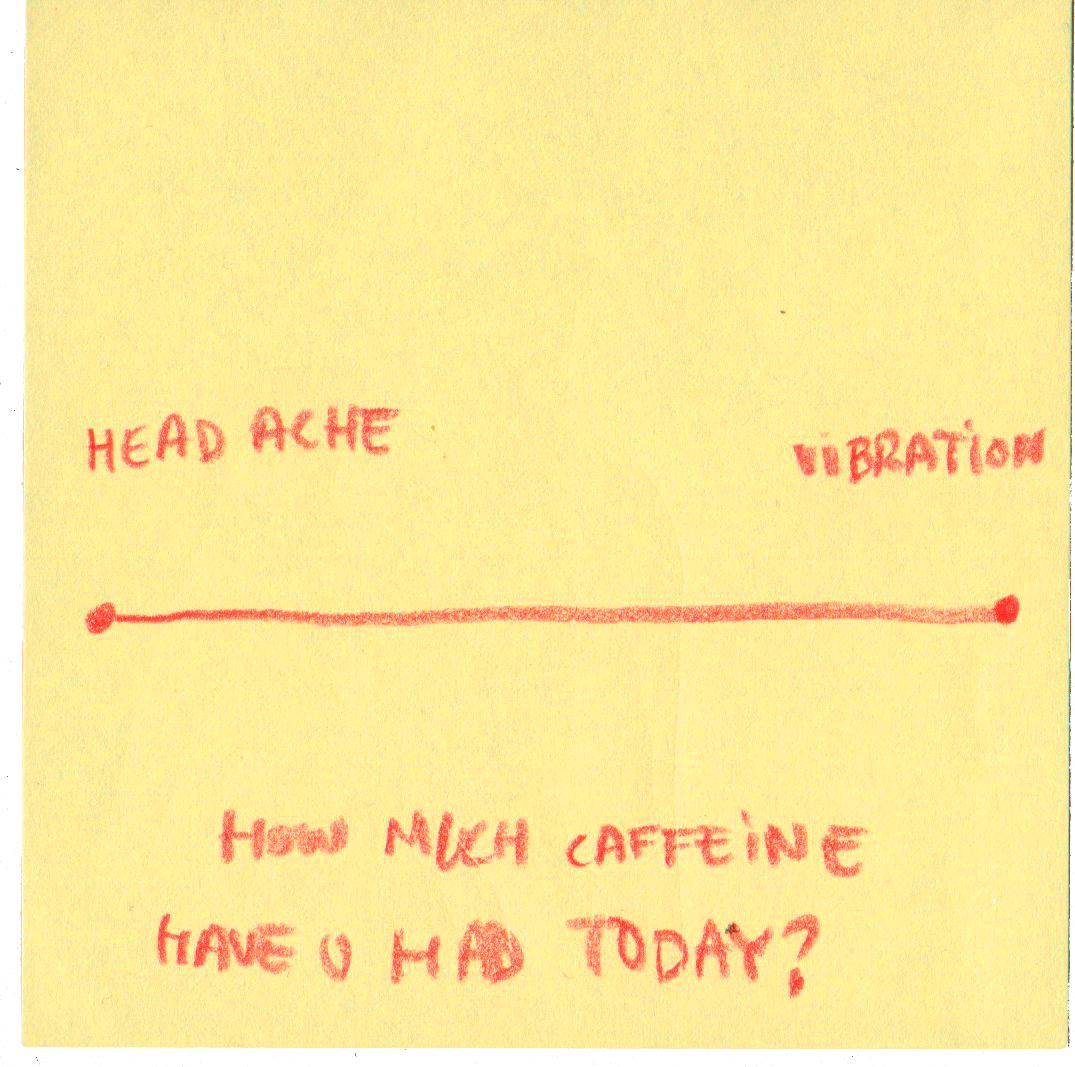 HEAD ACHE
ViBRATiON
HOW MUCH CAFFEiNE
HAVE U HAD TODAY?